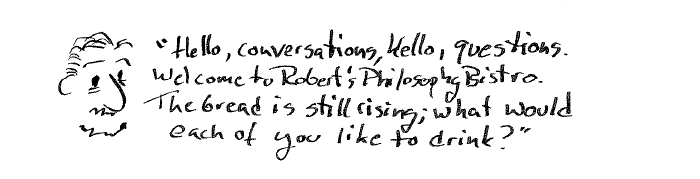 "Hello, conversations, Hello, questions.
Welcome to Robert's Philosophy Bistro.
The bread is still rising; what would
each of you like to drink?"